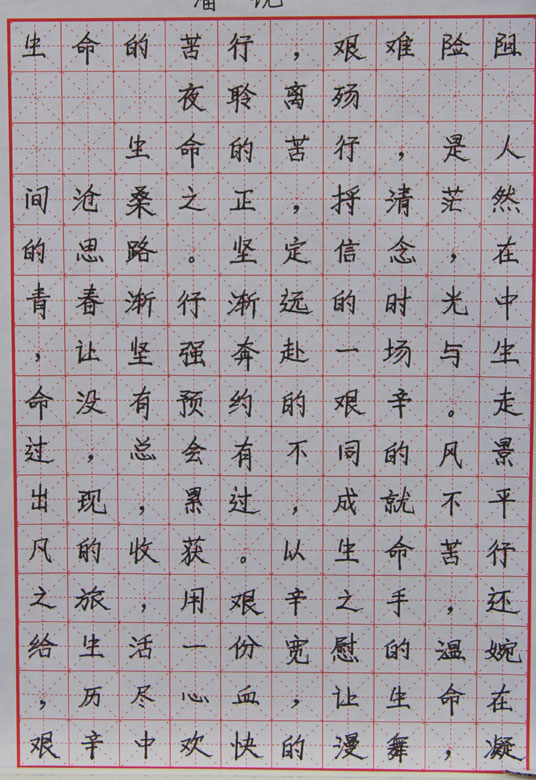 生命的苦行，艰难险阻
夜聆离殇
生命的苦行，是人
间沧桑之正，捋清茫然
的思路。坚定信念，在
青春渐行渐远的时光中
，让坚强奔赴一场与生
命没有预约的艰辛。走
过，总会有不同的风景
出现，累过，成就不平
凡的收获。以生命苦行
之旅，用艰辛之手，还
给生活一份宽慰的温婉
，历尽心血，让生命在
艰辛中欢快的漫舞，凝